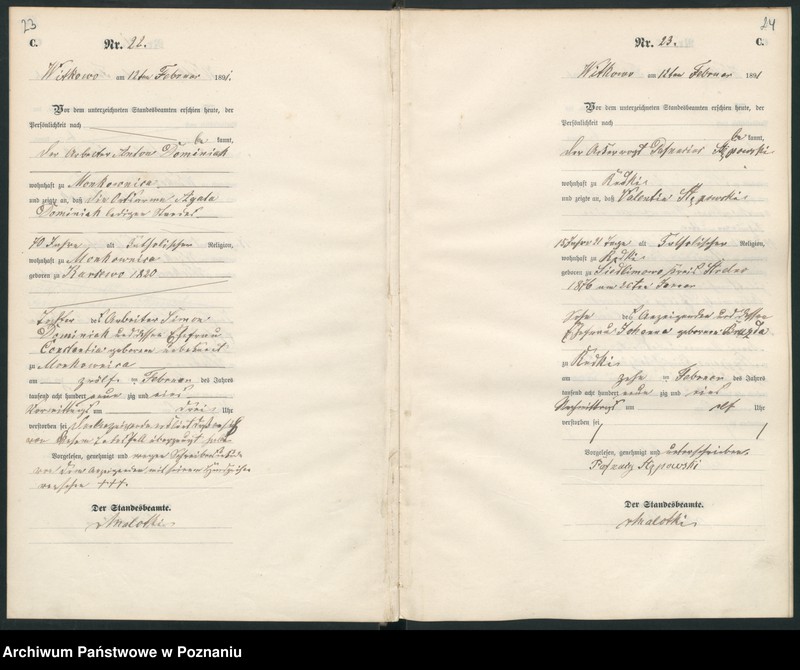 23
C.
Nr. 22.
Witkowo am 12ten Februar 1891.
Vor dem unterzeichneten Standesbeamten erschien heute, der
Persönlichkeit nach
be kannt,
der Arbeiter Anton Dominiak
wohnhaft zu Monkownica
und zeigte an, daß die Ortsarme Agata
Dominiak lediger Standes
70 Jahre alt katholischer Religion,
wohnhaft zu Monkownica
geboren zu Karsewo 1820
Tochter des Arbeiter Simon
Dominiak und dessen Ehefrau
geborene unbekannt
zu Monkownica
am zwölften Februar des Jahres
tausend acht hundert neun zig und eins
Vormittags um drei Uhr
verstorben sei
von diesem Todesfall überzeugt
Vorgelesen, genehmigt und wegen Schreibens
von dem Anzeigenden mit seinem Handzeichen
versehen +++.
Der Standesbeamte.
Malotki
24
C.
Nr. 23.
Witkowo am 12ten Februar 1891
Vor dem unterzeichneten Standesbeamten erschien heute, der
Persönlichkeit nach
be kannt,
der Ackervogt Ignatius Stępowski
wohnhaft zu Kołaczkowo
und zeigte an, daß Valentin Stępowski
15 Jahre 21 Tage alt katholischer Religion,
wohnhaft zu
geboren zu Siedlimowo Kreis
1876 am 20ten Januar
Sohn des Anzeigenden und dessen
Ehefrau Johanna geborene
zu
am zehn Februar des Jahres
tausend acht hundert neun zig und eins
Nachmittags um elf Uhr
verstorben sei
Vorgelesen, genehmigt und unterschrieben.
Ignacy Stępowski
Der Standesbeamte.
Malotki
Archiwum Państwowe w Poznaniu